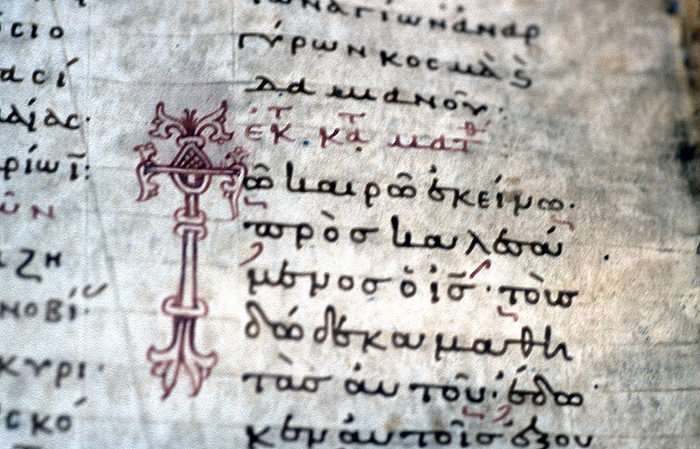 σιο
ασί
αίας·
ρίωϊ:
ῦν
ζη
νοβί·
κυρι·
σκό
των ἁγίων ἀναρ
γύρων κοσμὰ ϛ
δαμιανοῦ·
ἐκ τ κατ ματθ
Τῶ καιρῶ ἐκείνω·
προσκαλεσά
μενος ὁ ις· τοὺσ
δώδεκα μαθη
τὰσ αυτοῦ· ἔδω
κεν αυτοῖσ ἐξου